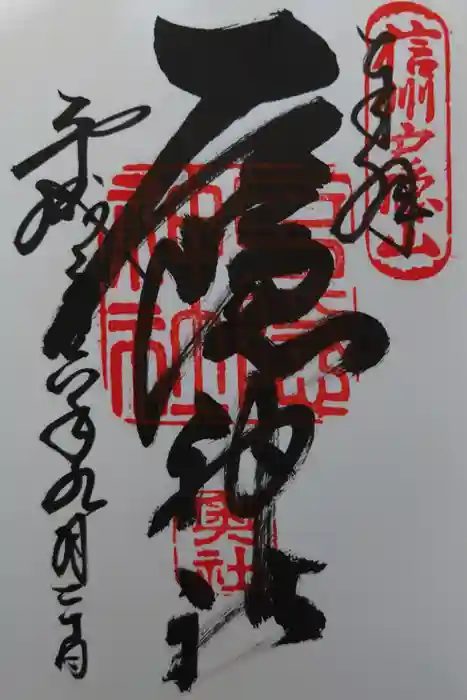 奉拝
信州戸隠山
戸隠神社
戸隠神社
奥社
平成二十六年九月二日